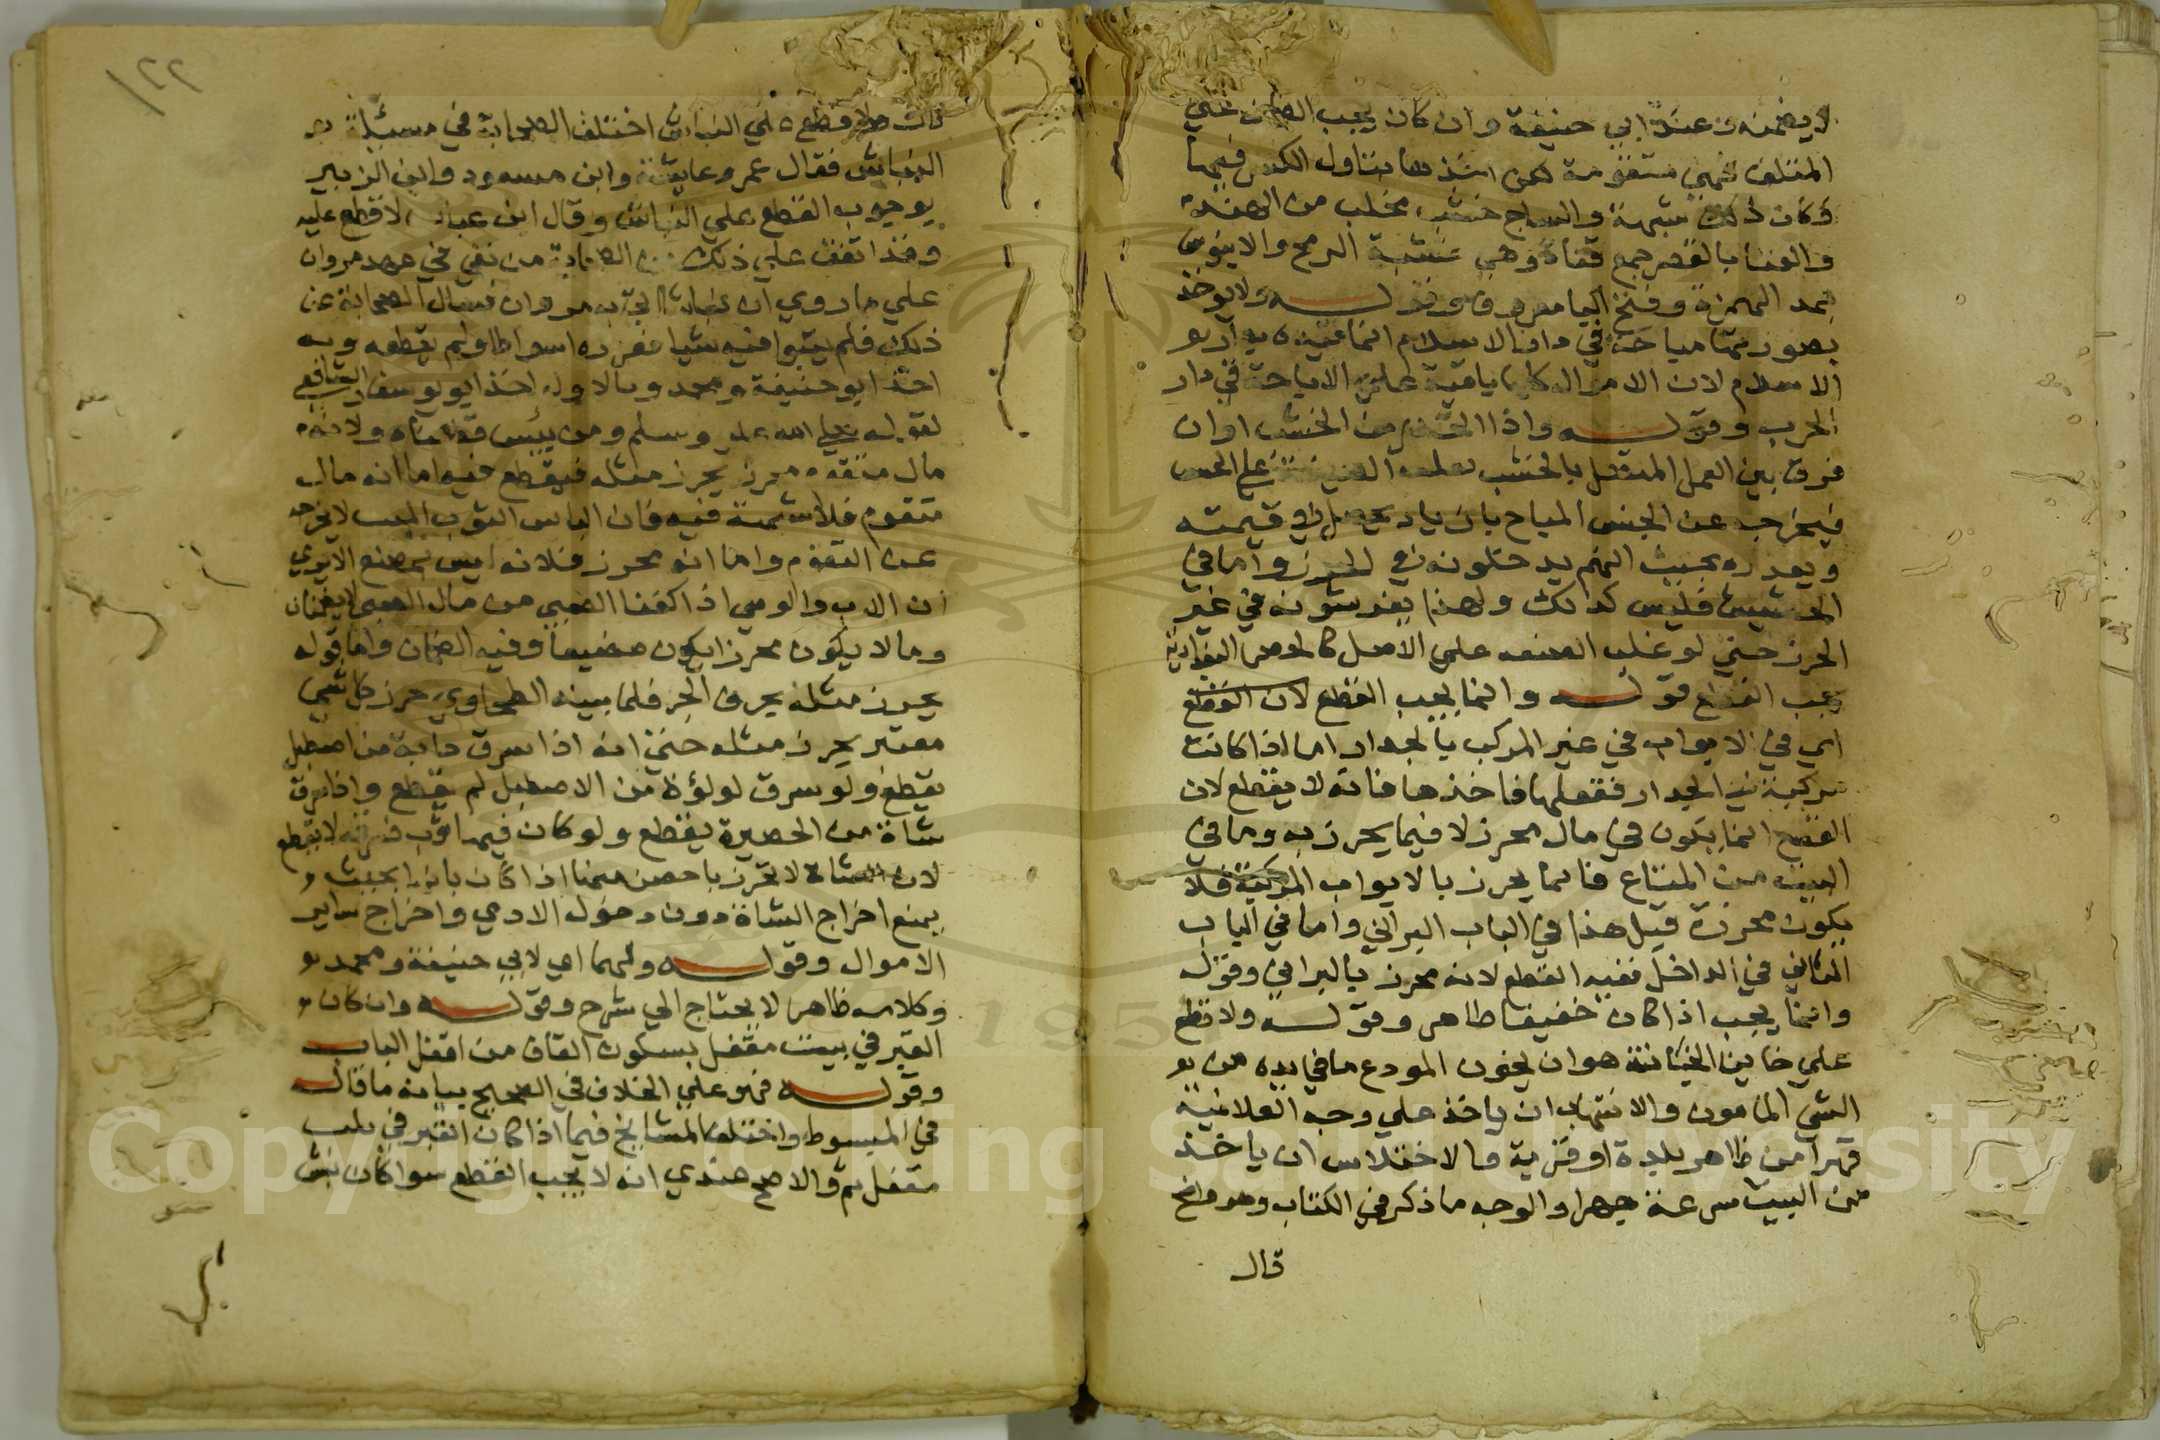 لا يضمنه عند ابي حنيفة وان كان يجب الضمان علي
المتلف فهي متقومة لكن اخذها يتاول الكسر فيها
فكان ذلك شبهة والساج خشب يجلب من الهند
والقنا بالقصر جمع قناة وهي خشبة الرمح والابنوس
بمد الهمزة وفتح البا معروف وقوله ولا يوخذ
بصورتها مباحة في دار الاسلام انما قيد بدار
الاسلام لان الاموال كلها باقية علي الاباحة في دار
الحرب وقوله واذا اتخذ من الخشب اوان
فرق بين العمل المتصل بالخشب
فيخرج عن الجنس المباح بازدياد يحصل في قيمته
بحيث انهم يدخلونه في الحرز واما في
الحشيش فليس كذلك ولهذا يفرشونه في غير
الحرز حتي لو غلب الصنعه علي الاصل كالحصر البغدادية
يجب القطع قوله وانما يجب القطع لان القطع
اي في الابواب في غير المركب بالجدار اما اذا كانت
مركبة في الجدار فقلعها فاخذها فانه لا يقطع لان
القطع انما يكون في مال محرز لا فيما يحرز به وما في
البيت من المتاع فانما يحرز بالابواب المركبة فلا
يكون محرزة قيل هذا في الباب البراني واما في الباب
الثاني في الداخل ففيه القطع لانه محرز بالبراني وقوله
وانما يجب اذا كان خفيفا ظاهر وقوله ولا قطع
علي خاين الخيانة هو ان يخون المودع ما في يده من
الشي المامون والانتهاب ان ياخذ علي وجه العلانية
قهرا من ظاهر بلدة او قرية والاختلاس ان ياخذ
من البيت سرعة جهرا والوجه ما ذكر في الكتاب وهو واضح
قال
١٢٢
قال ولا قطع علي النباش اختلف الصحابة في مسئلة
النباش فقال عمر وعايشة وابن مسعود وابن الزبير
بوجوب القطع علي النباش وقال ابن عباس لا قطع عليه
وقد اتفق علي ذلك من الصحابة من بقي في عهد مروان
علي ما روي ان نباشا اتي به مروان فسال الصحابة عن
ذلك فلم يثبتوا فيه شيا فعزره اسواطا ولم يقطعه وبه
اخذ ابو حنيفة ومحمد وبالاول اخذ ابو يوسف والشافعي
لقوله صلي الله عليه وسلم ومن نبش قطعناه ولانه
مال متقوم محرز يحرز مثله فيقطع فيه اما انه مال
متقوم فلا شبهة فيه فان الباس الثوب الميت لا يخرجه
عن التقوم واما انه محرز فلانه ليس بمضيع الا يري
ان الاب والوصي اذا كفنا الصبي من مال الصبي لا يضمنان
وما لا يكون محرزا يكون مضيعا وفيه الضمان واما قوله
يحرز مثله فلما بينه الطحاوي حرز كل شي
معتبر بحرز مثله حتي انه اذا سرق دابة من اصطبل
يقطع ولو سرق لولوة من الاصطبل لم يقطع واذا سرق
شاة من الحصيرة يقطع ولو كان فيها ثوب فسرقه لا يقطع
لان الشاة لا تحرز باحصن منها اذا كان بابها بحيث
يمنع اخراج الشاة دون دخول الادمي واخراج ساير
الاموال وقوله ولهما اي لابي حنيفة ومحمد
وكلامه ظاهر لا يحتاج الي شرح وقوله وان كان
القبر في بيت مقفل بسكون القاف من اقفل الباب
وقوله فهو علي الخلاف في الصحيح بيانه ما قاله
في المبسوط واختلف المشايخ فيما اذا كان القبر في بيت
مقفل ثم والاصح عندي انه لا يجب القطع سوا كان نبش
Copyright © King Saud University